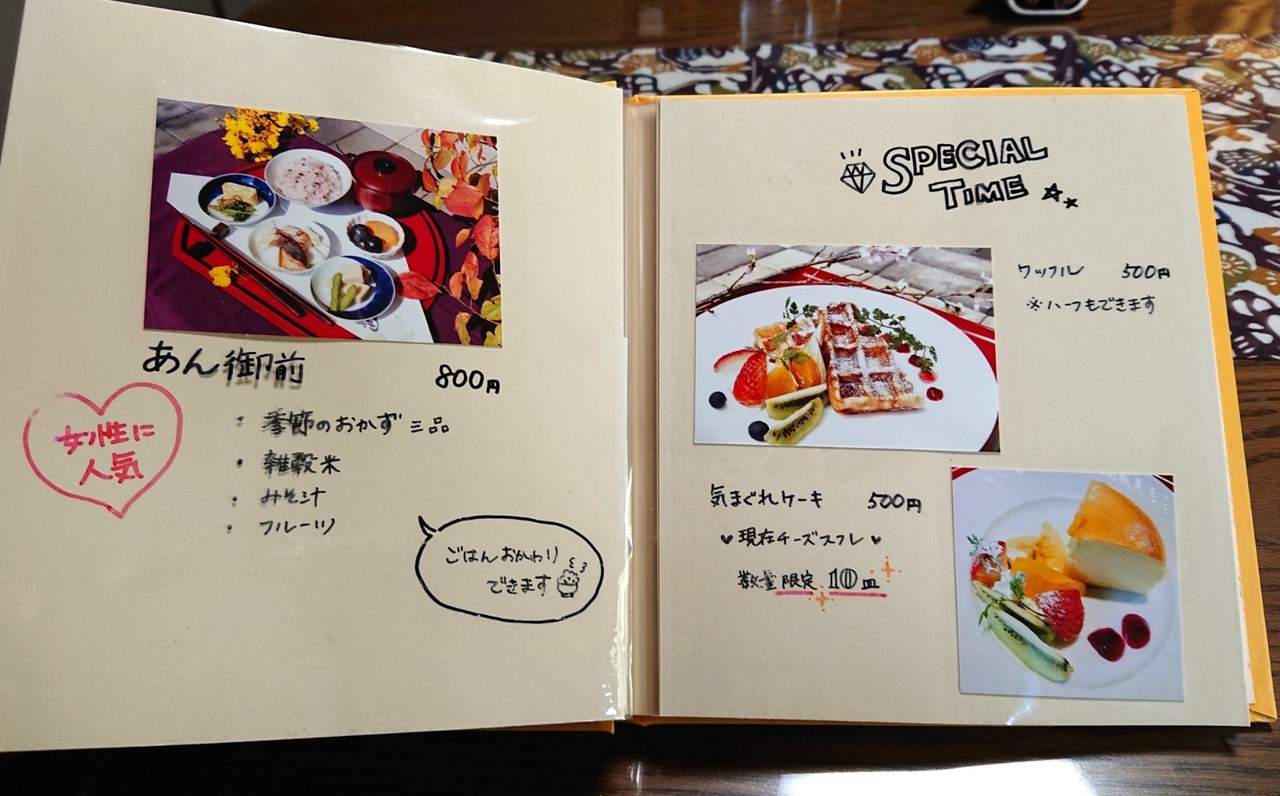 あん御前 800円
女性に
人気
・季節のおかず 三品
・雑穀米
・みそ汁
・フルーツ
ごはんおかわり
できます
SPECIAL
TIME
ワッフル 500円
※ハーフもできます
気まぐれケーキ 500円
♥現在チーズスフレ♥
数量限定 10皿